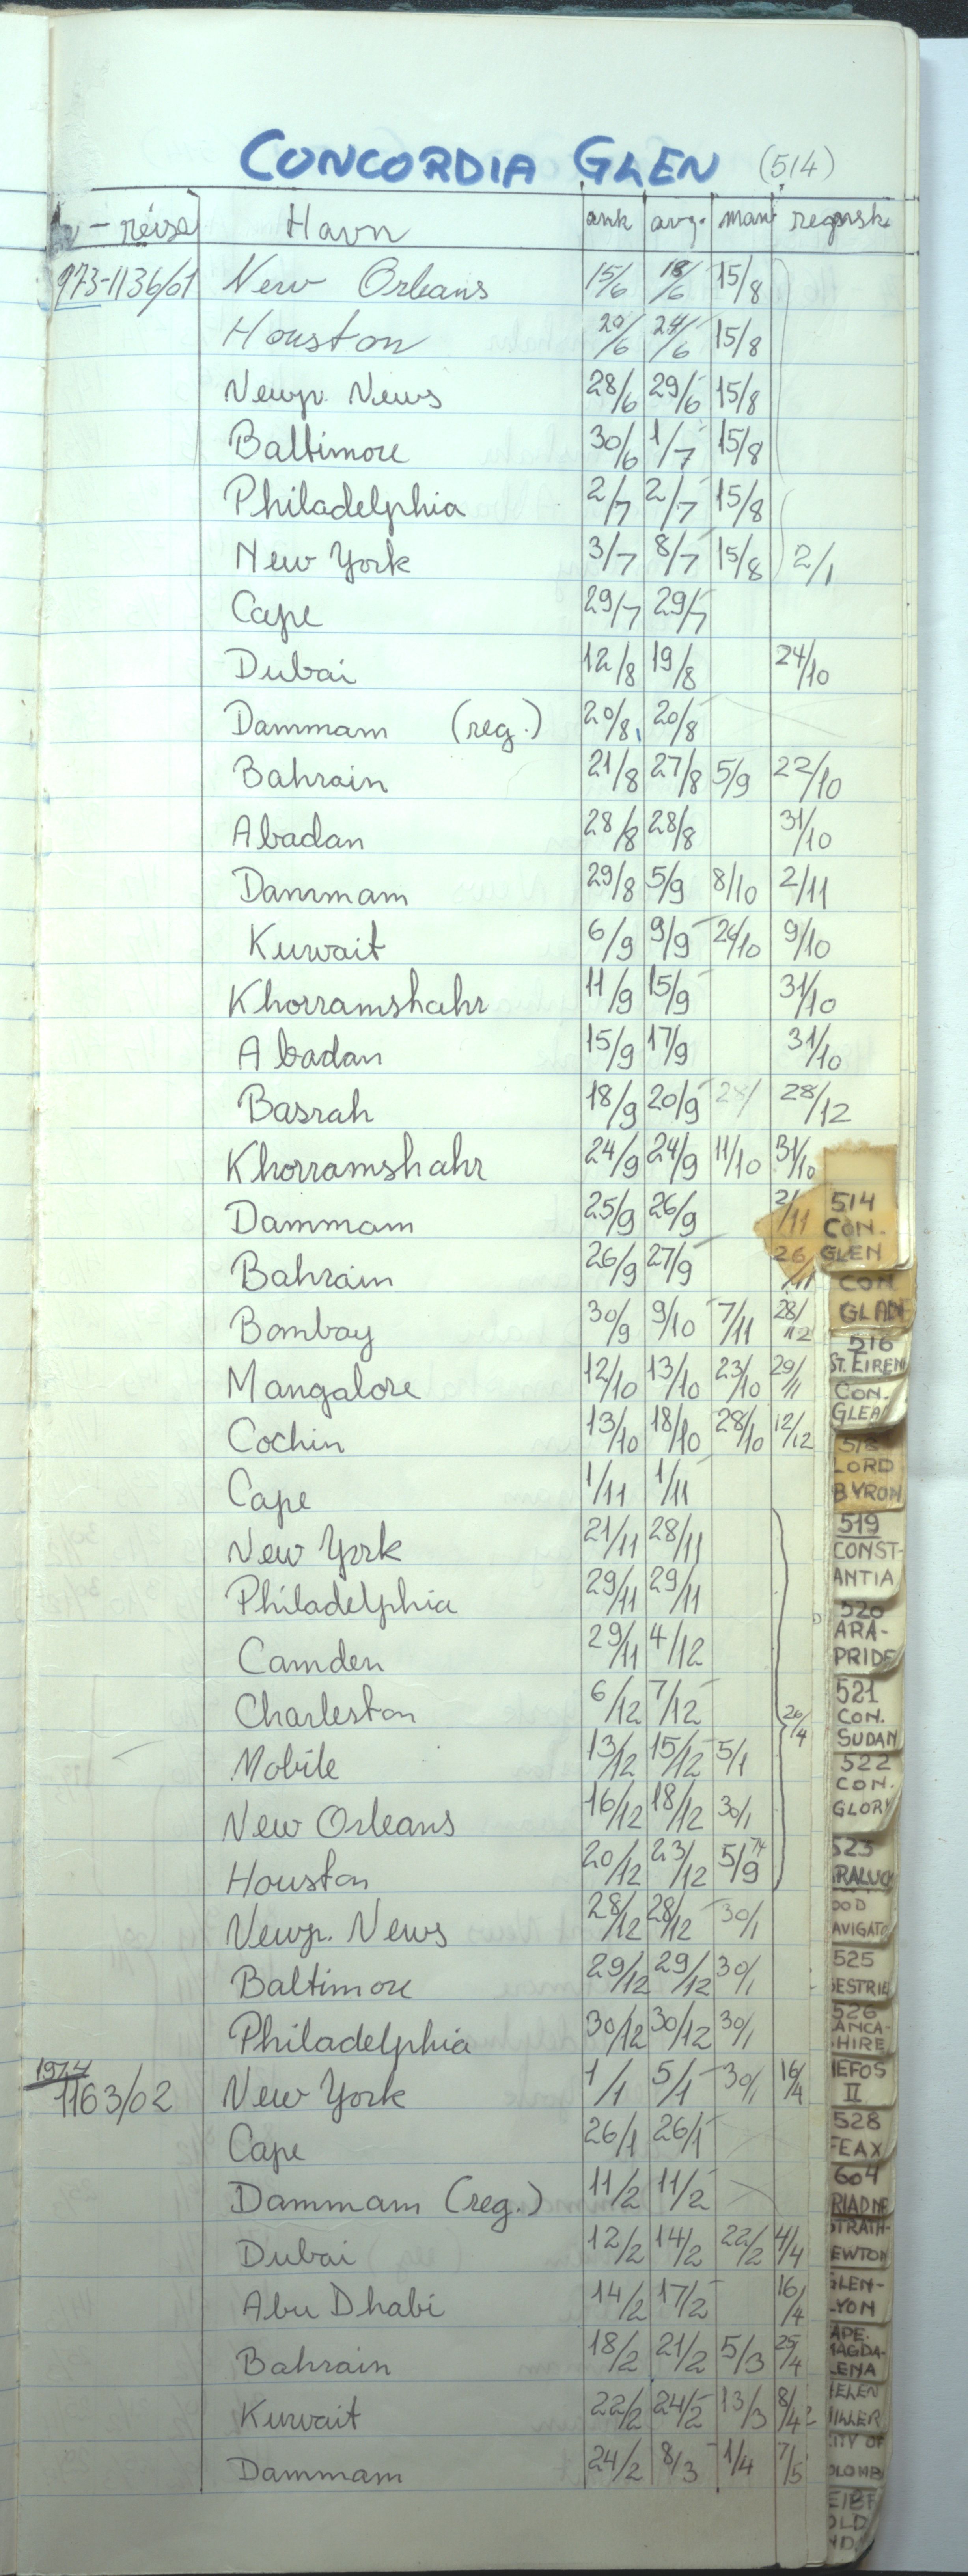 CONCORDIA GLEN (514)
- reise Havn ank avg. man regnsk.
973-1136/01 New Orleans 15/6 18/6 15/8
Houston 20/6 24/6 15/8
Newp. News 28/6 29/6 15/8
Baltimore 30/6 1/7 15/8
Philadelphia 2/7 2/7 15/8
New York 3/7 8/7 15/8 2/1
Cape 29/7 29/7
Dubai 12/8 19/8 24/10
Dammam (reg.) 20/8 20/8
Bahrain 21/8 27/8 5/9 22/10
Abadan 28/8 28/8 31/10
Dammam 29/8 5/9 8/10 2/11
Kuwait 6/9 9/9 26/10 9/10
Khorramshahr 11/9 15/9 31/10
Abadan 15/9 17/9 31/10
Basrah 18/9 20/9 28/ 28/12
Khorramshahr 24/9 24/9 11/10 31/10
Dammam 25/9 26/9 2/11
Bahrain 26/9 27/9 26/11
Bombay 30/9 9/10 7/11 28/12
Mangalore 12/10 13/10 23/10 29/11
Cochin 13/10 18/10 28/10 12/12
Cape 1/11 1/11
New York 21/11 28/11
Philadelphia 29/11 29/11
Camden 29/11 4/12
Charleston 6/12 7/12 26/4
Mobile 13/12 15/12 5/1
New Orleans 16/12 18/12 30/1
Houston 20/12 23/12 5/9 74
Newp. News 28/12 28/12 30/1
Baltimore 29/12 29/12 30/1
Philadelphia 30/12 30/12 30/1
1974
1163/02 New York 1/1 5/1 30/1 16/4
Cape 26/1 26/1
Dammam (reg.) 11/2 11/2
Dubai 12/2 14/2 22/2 4/4
Abu Dhabi 14/2 17/2 16/4
Bahrain 18/2 21/2 5/3 25/4
Kuwait 22/2 24/2 13/3 8/4
Dammam 24/2 8/3 1/4 7/5
514
CON.
GLEN
CON
GLADE
516
ST. EIREN
CON.
GLEA
518
LORD
BYRON
519
CONST-
ANTIA
520
ARA-
PRIDE
521
CON.
SUDAN
522
CON.
GLORY
523
RALUC
OOD
AVIGATO
525
ESTRIE
526
ANCA-
HIRE
EFOS
II
528
FEAX
604
RIADNE
STRATH-
EWTON
GLEN-
LYON
APE.
MAGDA-
LENA
HELEN
MILLER
CITY OF
OLOMB